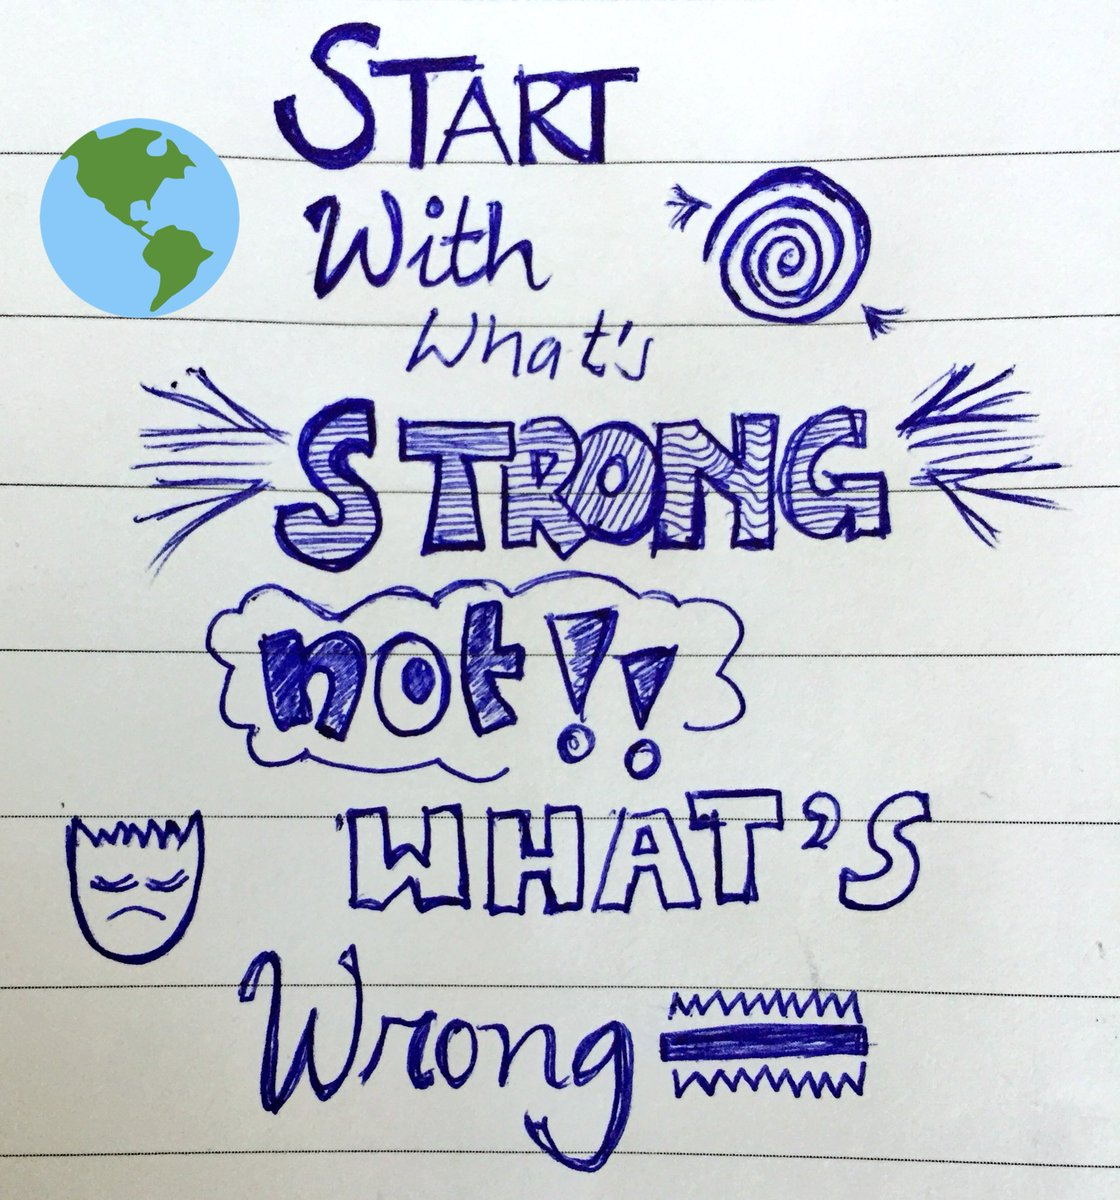 START
With
What's
STRONG
not!!
WHAT'S
Wrong